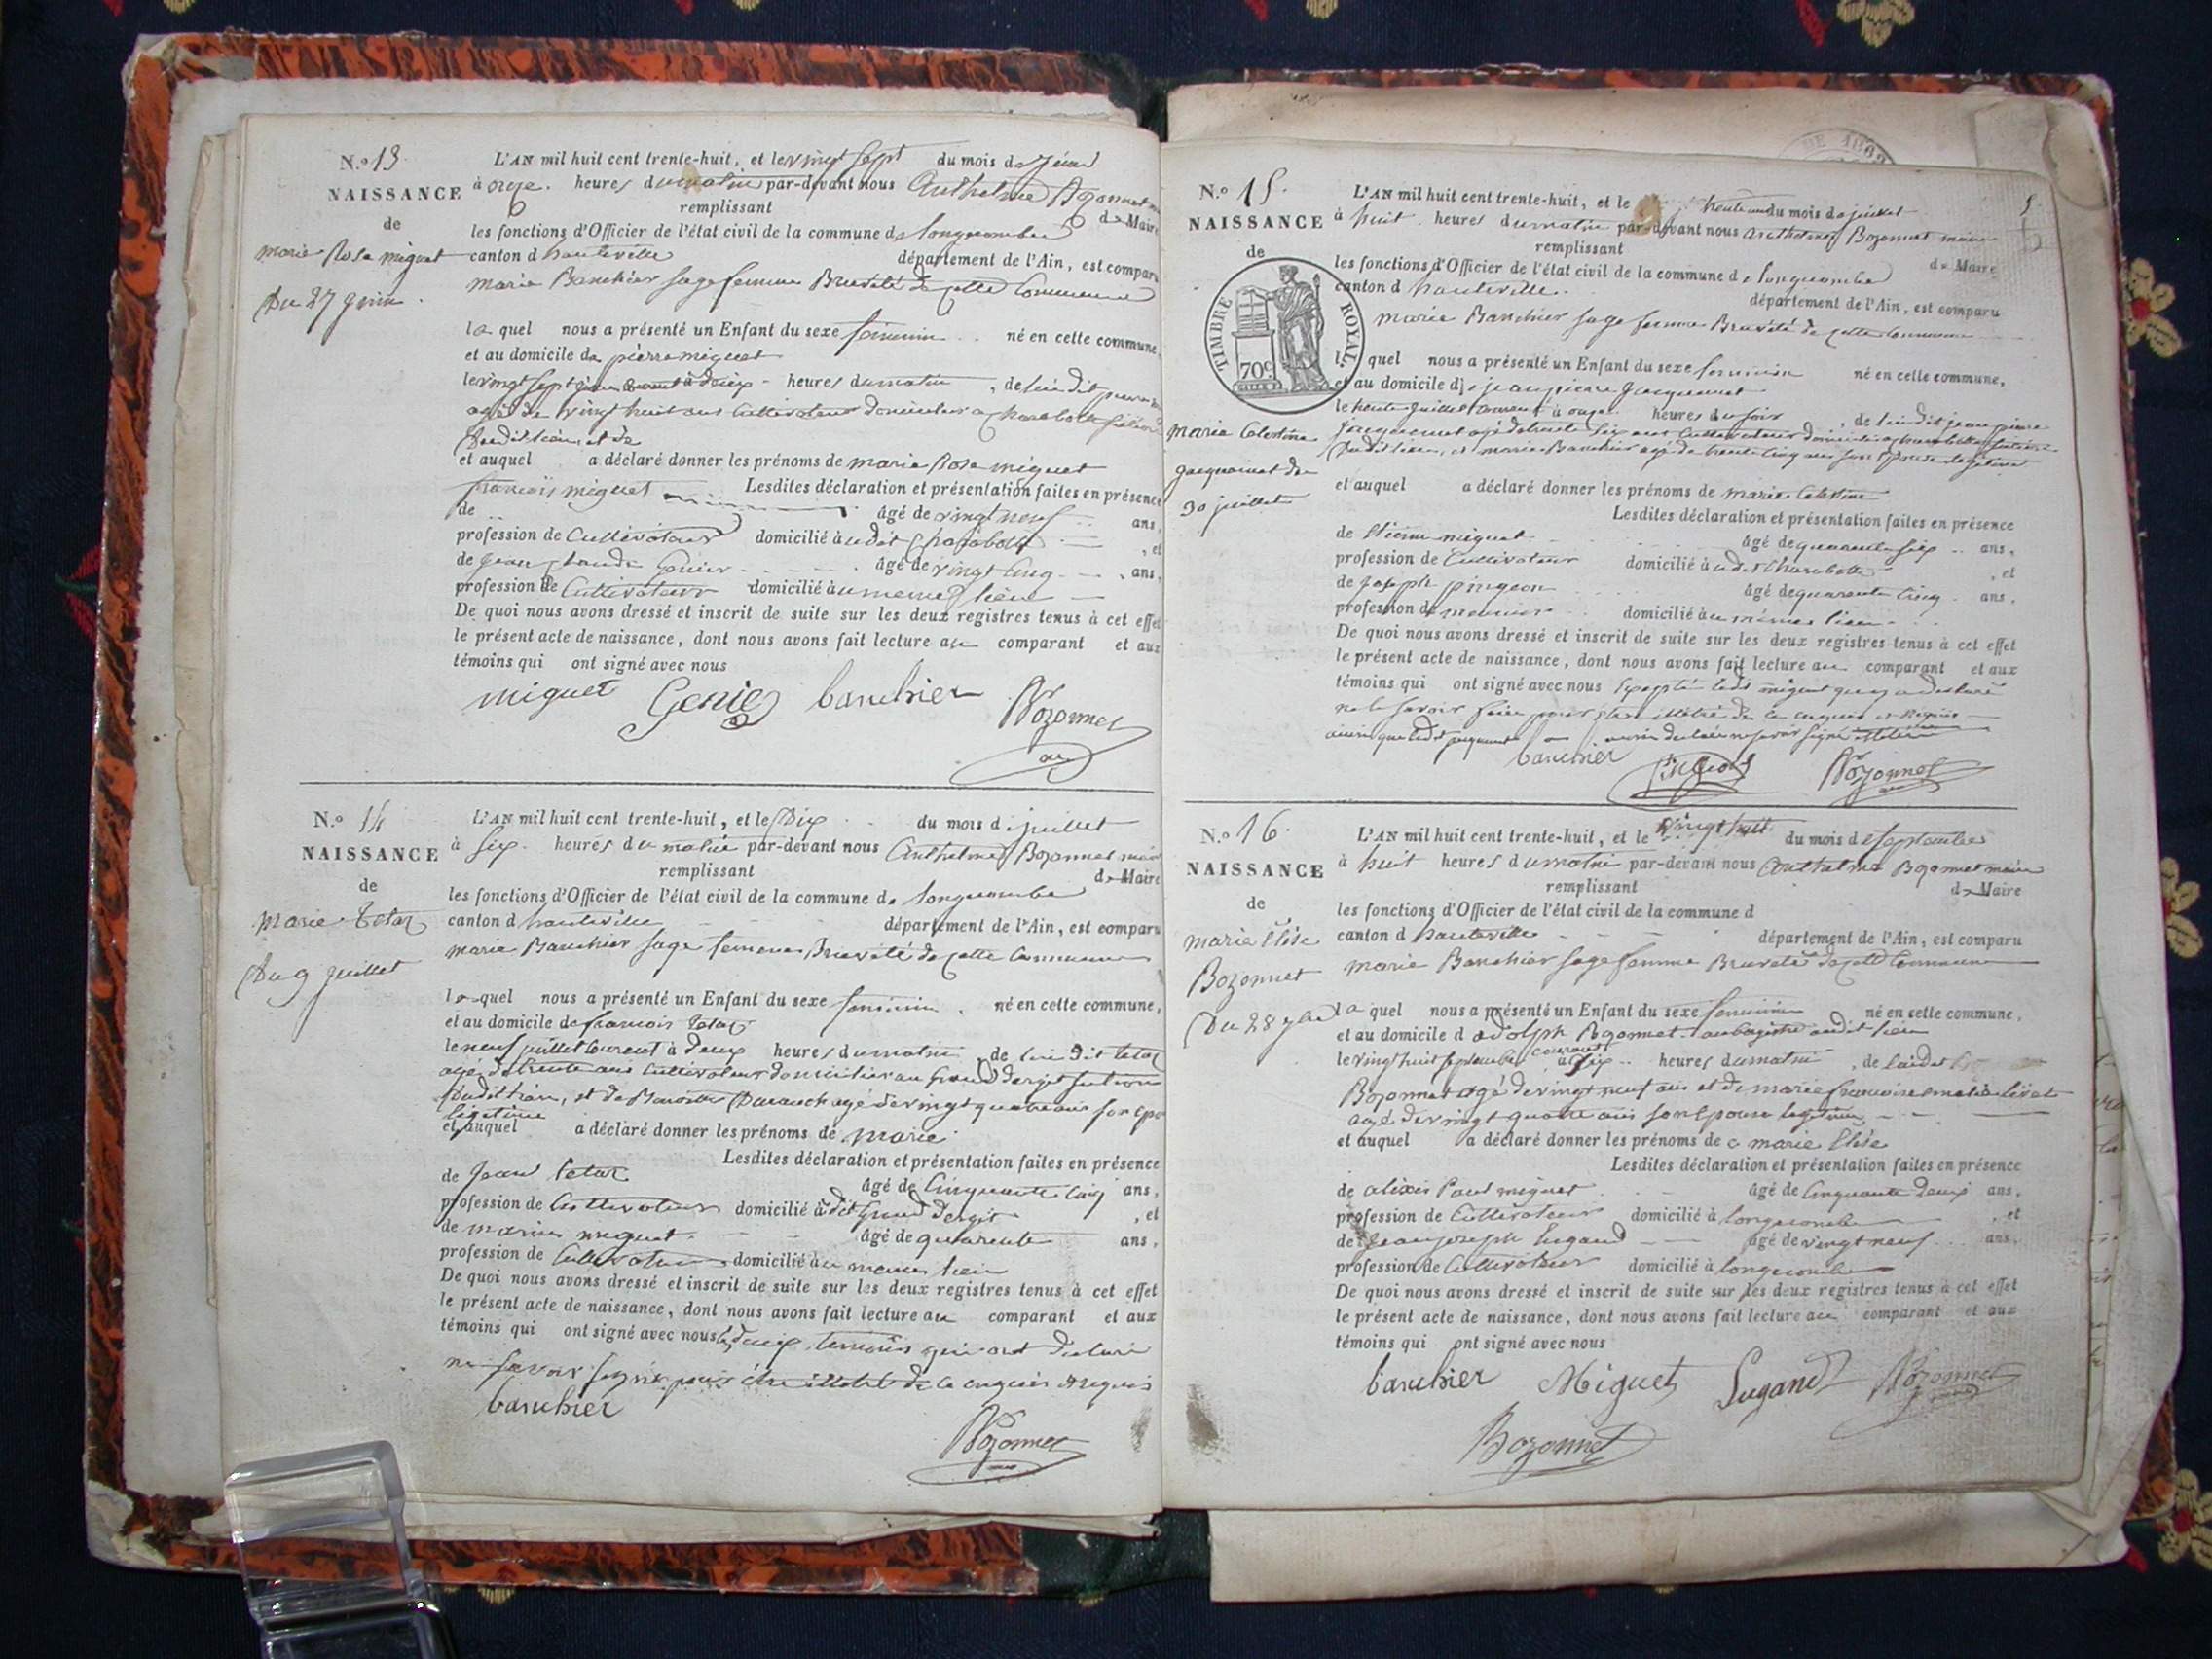 N.o 13
NAISSANCE
de
marie Rose miguet
Du 27 juin
L'AN mil huit cent trente-huit, et le vingt sept du mois de juin
à onze heures du matin par-devant nous Anthelme Bozonnet
remplissant de Maire
les fonctions d'Officier de l'état civil de la commune de longecombe
canton d hauteville département de l'Ain, est comparu
marie Bauchier sage femme Brevété de cette Commune
la quel nous a présenté un Enfant du sexe feminin né en cette commune,
et au domicile de pierre miguet
le vingt sept juin à deux heures du matin, de lui dit pierre
agé de vingt huit ans Cultivateur domicilier a
dudit lieu et de
et auquel a déclaré donner les prénoms de marie Rose miguet
Lesdites déclaration et présentation faites en présence
de francois miguet âgé de vingt neuf ans,
profession de Cultivateur domicilié à udit Charabotte, et
de jean Claude Genier âgé de vingt Cinq ans,
profession de Cultivateur domicilié à u meme lieu
De quoi nous avons dressé et inscrit de suite sur les deux registres tenus à cet effet
le présent acte de naissance, dont nous avons fait lecture au comparant et aux
témoins qui ont signé avec nous
miguet Genier bauchier Bozonnet
N.o 14
NAISSANCE
de
marie Tetaz
Du 9 juillet
L'AN mil huit cent trente-huit, et le Dix du mois d juillet
à six heures du matin par-devant nous Anthelme Bozonnet maire
remplissant de Maire
les fonctions d'Officier de l'état civil de la commune de longecombe
canton d hauteville département de l'Ain, est comparu
marie Bauchier sage femme Brevété de cette Commune
la quel nous a présenté un Enfant du sexe feminin né en cette commune,
et au domicile de francois Tetaz
le neuf juillet Courent à deux heures du matin, de lui dit tetaz
agé de trente ans Cultivateur domicilier au Grand dergit
dudit lieu, et de agé de vingt quatre ans son
légitime
et auquel a déclaré donner les prénoms de marie
Lesdites déclaration et présentation faites en présence
de Jean tetaz âgé de Cinquante Cinq ans,
profession de Cultivateur domicilié à udit Grand dergit, et
de marin miguet âgé de quarente ans,
profession de Cultivateur domicilié à u meme lieu
De quoi nous avons dressé et inscrit de suite sur les deux registres tenus à cet effet
le présent acte de naissance, dont nous avons fait lecture au comparant et aux
témoins qui ont signé avec nous deux temoins qui ont declaré
ne savoir signer pour être illétré de ce enquis et requis
bauchier
Bozonnet
N.o 15
NAISSANCE
de
TIMBRE ROYAL.
70c
marie Celestine
Jacquemet du
30 juillet
L'AN mil huit cent trente-huit, et le trente un du mois de juillet
à huit heures du matin par-devant nous Anthelme Bozonnet maire
remplissant de Maire
les fonctions d'Officier de l'état civil de la commune de longecombe
canton d hauteville
département de l'Ain, est comparu
marie Bauchier sage femme Brevété de cette Commune
l quel nous a présenté un Enfant du sexe feminin né en cette commune,
et au domicile de jean pierre Jacquemet
le trente juillet Courent à onze heures du soir, de lui dit jean pierre
jacquemet agé de trente six ans Cultivateur domicilié a Charabotte
dudit lieu, et marie Bauchier agé de trente Cinq ans son Epouse legitime
et auquel a déclaré donner les prénoms de marie Celestine
Lesdites déclaration et présentation faites en présence
de Etienne miguet âgé de quarente six ans,
profession de Cultivateur domicilié à udit Charabotte, et
de Joseph pingeon âgé de quarente Cinq ans,
profession de meunier domicilié à u même lieu
De quoi nous avons dressé et inscrit de suite sur les deux registres tenus à cet effet
le présent acte de naissance, dont nous avons fait lecture au comparant et aux
témoins qui ont signé avec nous Excepté ledit miguet qui a declaré
ne le savoir faire pour être illétré de ce enquis et requis
ainsi que ledit jacquemet
bauchier Pingeon Bozonnet
N.o 16
NAISSANCE
de
marie Elise
Bozonnet
Du 28 7bre
L'AN mil huit cent trente-huit, et le vingt huit du mois de Septembre
à huit heures du matin par-devant nous Anthelme Bozonnet maire
remplissant de Maire
les fonctions d'Officier de l'état civil de la commune d
canton d hauteville département de l'Ain, est comparu
marie Bauchier sage femme Brevété de cette Commune
la quel nous a présenté un Enfant du sexe feminin né en cette commune,
et au domicile d adolph Bozonnet aubergiste audit lieu
le vingt huit Septembre courant à six heures du matin, de lui dit
Bozonnet agé de vingt neuf ans et de marie francoise
agé de vingt quatre ans son Epouse legitime
et auquel a déclaré donner les prénoms de marie Elise
Lesdites déclaration et présentation faites en présence
de alexis Paul miguet âgé de Cinquante deux ans,
profession de Cultivateur domicilié à longecombe, et
de Jean joseph Lugand âgé de vingt neuf ans,
profession de Cultivateur domicilié à longecombe
De quoi nous avons dressé et inscrit de suite sur les deux registres tenus à cet effet
le présent acte de naissance, dont nous avons fait lecture au comparant et aux
témoins qui ont signé avec nous
bauchier Miguet Lugand Bozonnet
Bozonnet